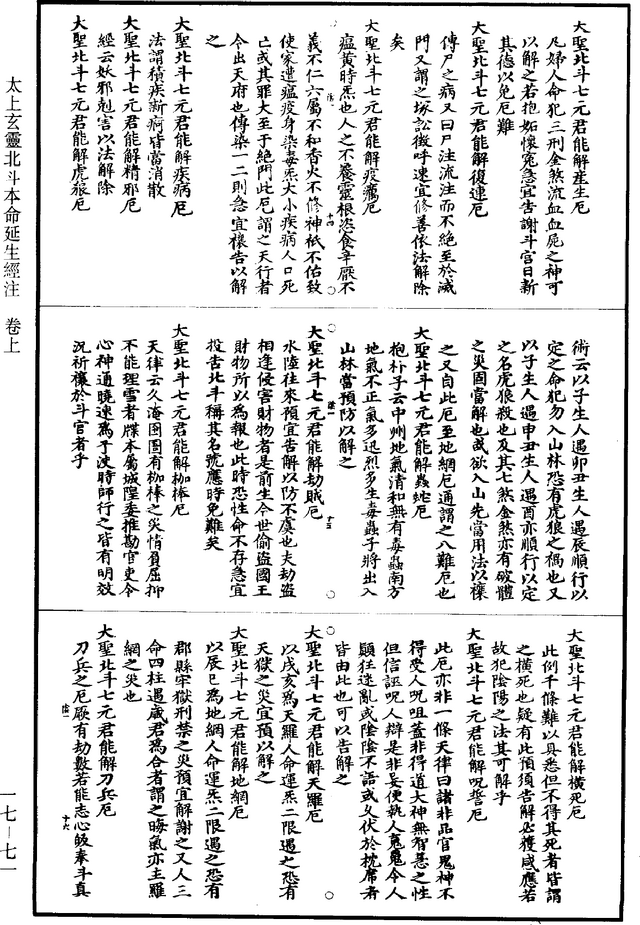 大聖北斗七元君能解産生厄
凡婦人命犯三刑金煞流血血屍之神可
以解之若抱妬懷寃急宜告謝斗宮日新
其德以免厄難
大聖北斗七元君能解復連厄
傳尸之病又曰尸注流注而不絶至於滅
門又謂之塚訟徵呼速宜修善依法解除
矣
大聖北斗七元君能解疫癘厄
瘟黄時炁也人之不養靈根恣食辛厭不
義不仁六屬不和香火不修神祇不佑致
使家遭瘟疫身染毒炁大小疾病人口死
亡或其罪大至于絶門此厄謂之天行者
令出天府也傳染一二則急宜禳告以解
之
大聖北斗七元君能解疾病厄
法謂積疾新痾皆當消散
大聖北斗七元君能解精邪厄
經云妖邪剋害以法解除
大聖北斗七元君能解虎狼厄
術云以子生人遇卯丑生人遇辰順行以
定之命犯勿入山林恐有虎狼之禍也又
以子生人遇申丑生人遇酉亦順行以定
之名虎狼殺也及其七煞金煞亦有破體
之災固當解也或欲入山先當用法以禳
之又自此厄至地網厄通謂之八難厄也
大聖北斗七元君能解蟲蛇厄
抱朴子云中州地氣清和無有毒蟲南方
地氣不正氣多迅烈多生毒蟲子將出入
山林當預防以解之
大聖北斗七元君能解劫賊厄
水陸往來預宜告解以防不虞也夫劫盗
相逢侵害財物者是前生今世偷盗國王
財物所以為報也此時恐性命不存急宜
投告北斗稱其名號應時免難矣
大聖北斗七元君能解枷棒厄
天律云久淹囹圄有枷棒之災情負屈抑
不能理雪者牒本屬城隍委推勘官吏令
心神通曉速為予決時師行之皆有明效
況祈禳於斗官者乎
大聖北斗七元君能解横死厄
此例千條難以具悉但不得其死者皆謂
之横死也疑有此預須告解必獲感應若
故犯陰陽之法其可解乎
大聖北斗七元君能解呪誓厄
此厄亦非一條天律曰諸非品官鬼神不
得受人呪咀蓋非得道大神無智慧之性
但信詛呪人辯是非妄便執人寃鬼令人
顛狂迷亂或陰陰不語或乂伏於枕席者
皆由此也可以告解之
大聖北斗七元君能解天羅厄
以戌亥為天羅人命運炁二限遇之恐有
天獄之災宜預以解之
大聖北斗七元君能解地網厄
以辰巳為地網人命運炁二限遇之恐有
郡縣牢獄刑禁之災預宜解謝之又人三
命四柱遇歲君為合者謂之晦氣亦主羅
網之災也
大聖北斗七元君能解刀兵厄
刀兵之厄厥有劫數若能志心皈奉斗真
太上玄靈北斗本命延生經注 卷上
一七—七一